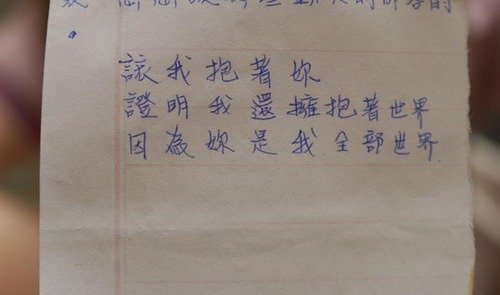 。
讓我抱著妳
證明我還擁抱著世界
因為妳是我全部世界